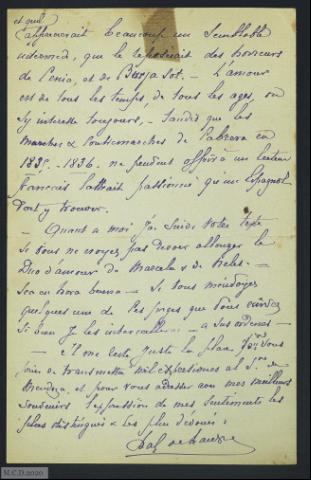 et qui
affaiblirait beaucoup un semblable
intermède, que le reposerait des horreurs
de l'enia, et de Burjasot. — L'amour
est de tous les temps, de tous les ages, on
s'y interesse toujours, — tandis que les
marches & contremarches de Cabrera en
1835 - 1836 ne peuvent offrir à un lecteur
français l'attrait passionné qu'un Espagnol
peut y trouver.
— Quant a moi j'ai suivi votre texte
Si vous ne croyez pas devoir allonger le
Duo d'amour de Marcela & de Nelet —
sea en hora buena — Si vous m'envoyez
quelques une de les pages que vous
si bien je les intercallerai — a sus ordenes —
— Il me reste juste la place pour vous
prier de transmettre mil expresiones al Sr. de
Mendez et pour vous adresser avec mes meilleurs
souvenirs l'expression de mes sentiments les
plus distingués & les plus dévoués.
M.C.D. 2020